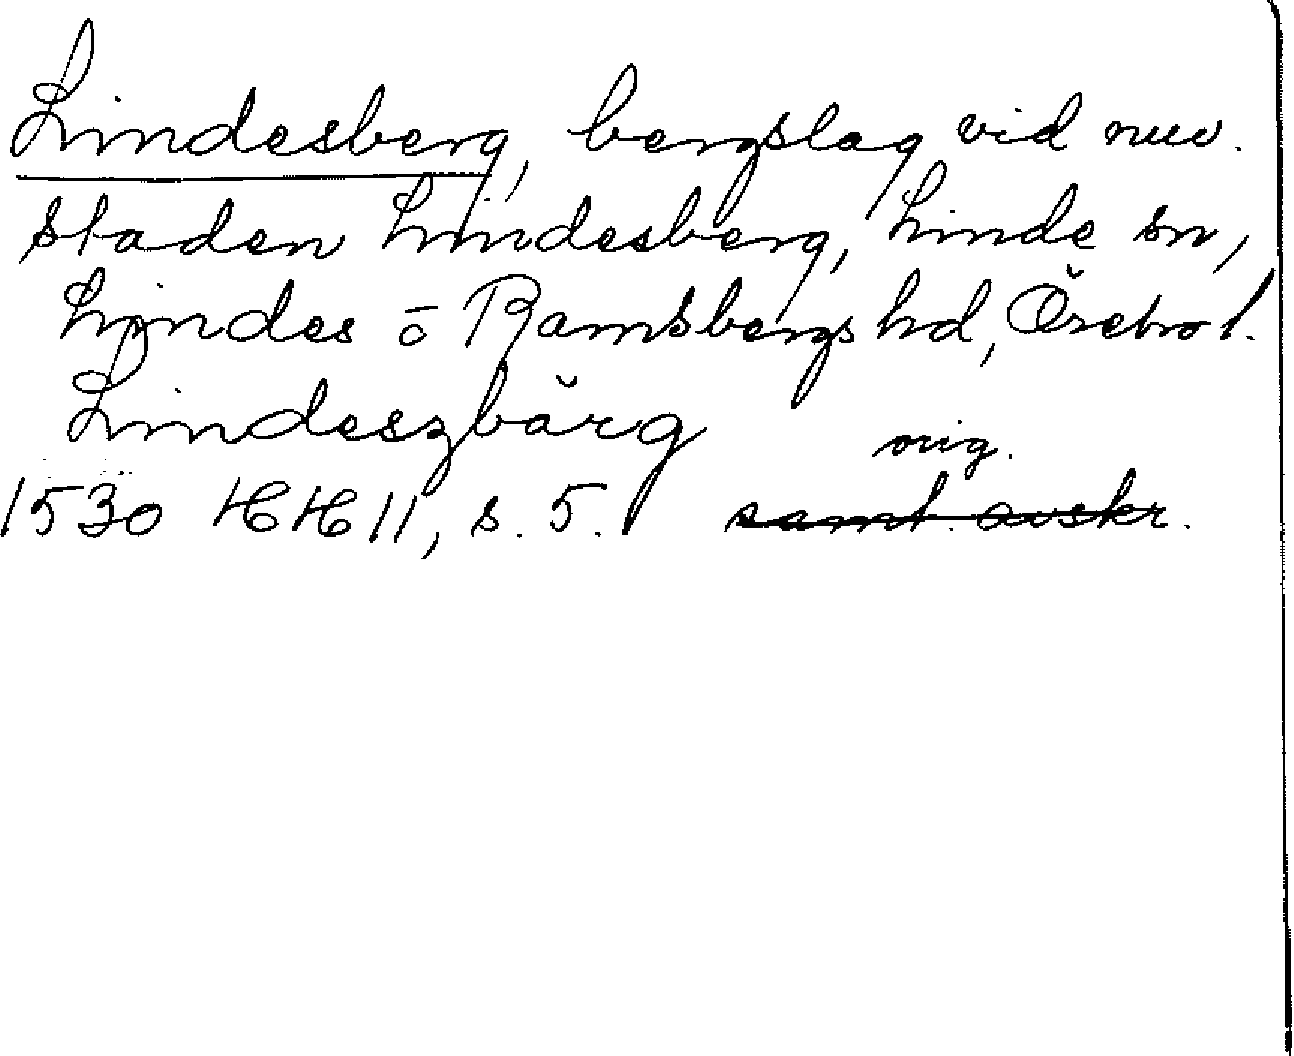 Lindesberg, bergslag vid nuv.
staden Lindesberg, Linde sn,
Lindes o Ramsbergs hd, Örebro l.
Lindeszbärg
orig.
1530 HH 11, s. 5. samt. avskr.